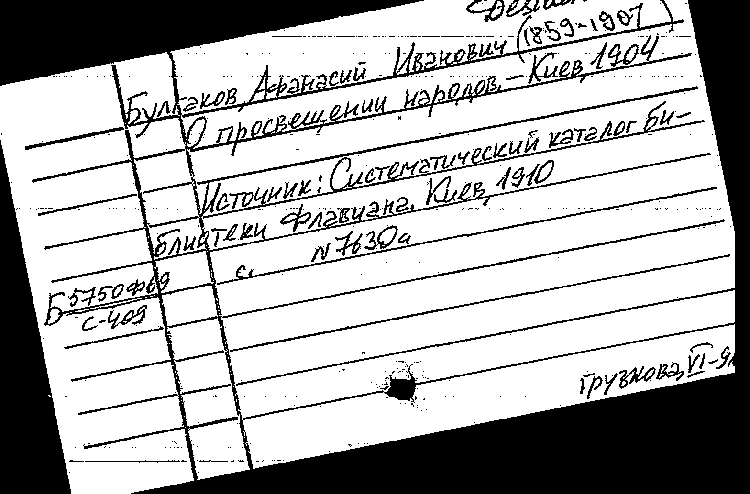 Булгаков, Афанасий Иванович (1859-1907)
О просвещении народов. – Киев, 1904
Источник: Систематический каталог би-
блиотеки Флавиана. Киев, 1910
с. N 7630а
Б 5750Ф69
С-409
Грузкова, VI-9